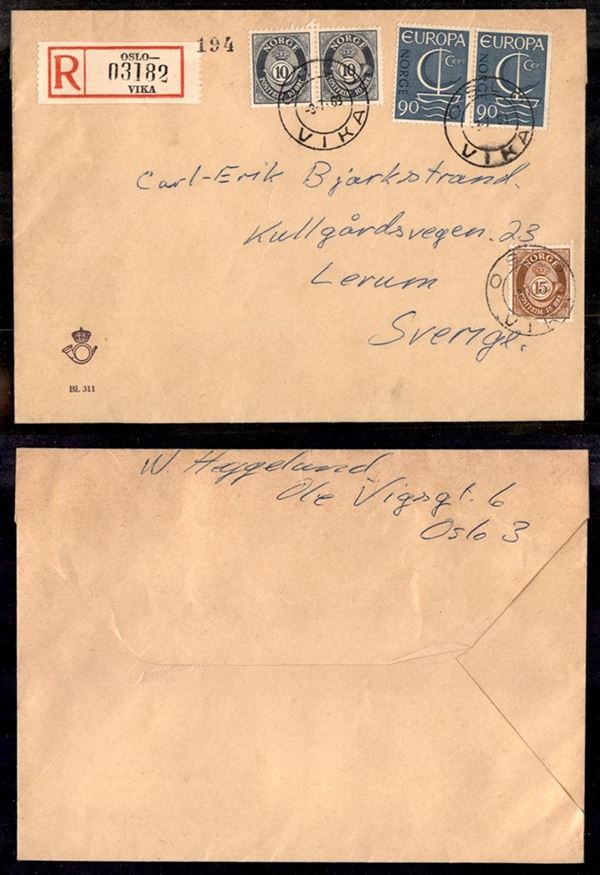 R
OSLO—
03182
VIKA
194
NORGE
10
POSTFRIM. 10 ØRE
NORGE
10
POSTFRIM. 10 ØRE
EUROPA
CEPT
NORGE
90
EUROPA
CEPT
NORGE
90
VIKA
VIKA
Carl-Erik Bjarkstrand.
Kullgårdsvegen. 23
Lerum
Sverige.
NORGE
15
OSLO
VIKA
Bl. 311
W. Heggelund
Ole Vigsgt. 6
Oslo 3